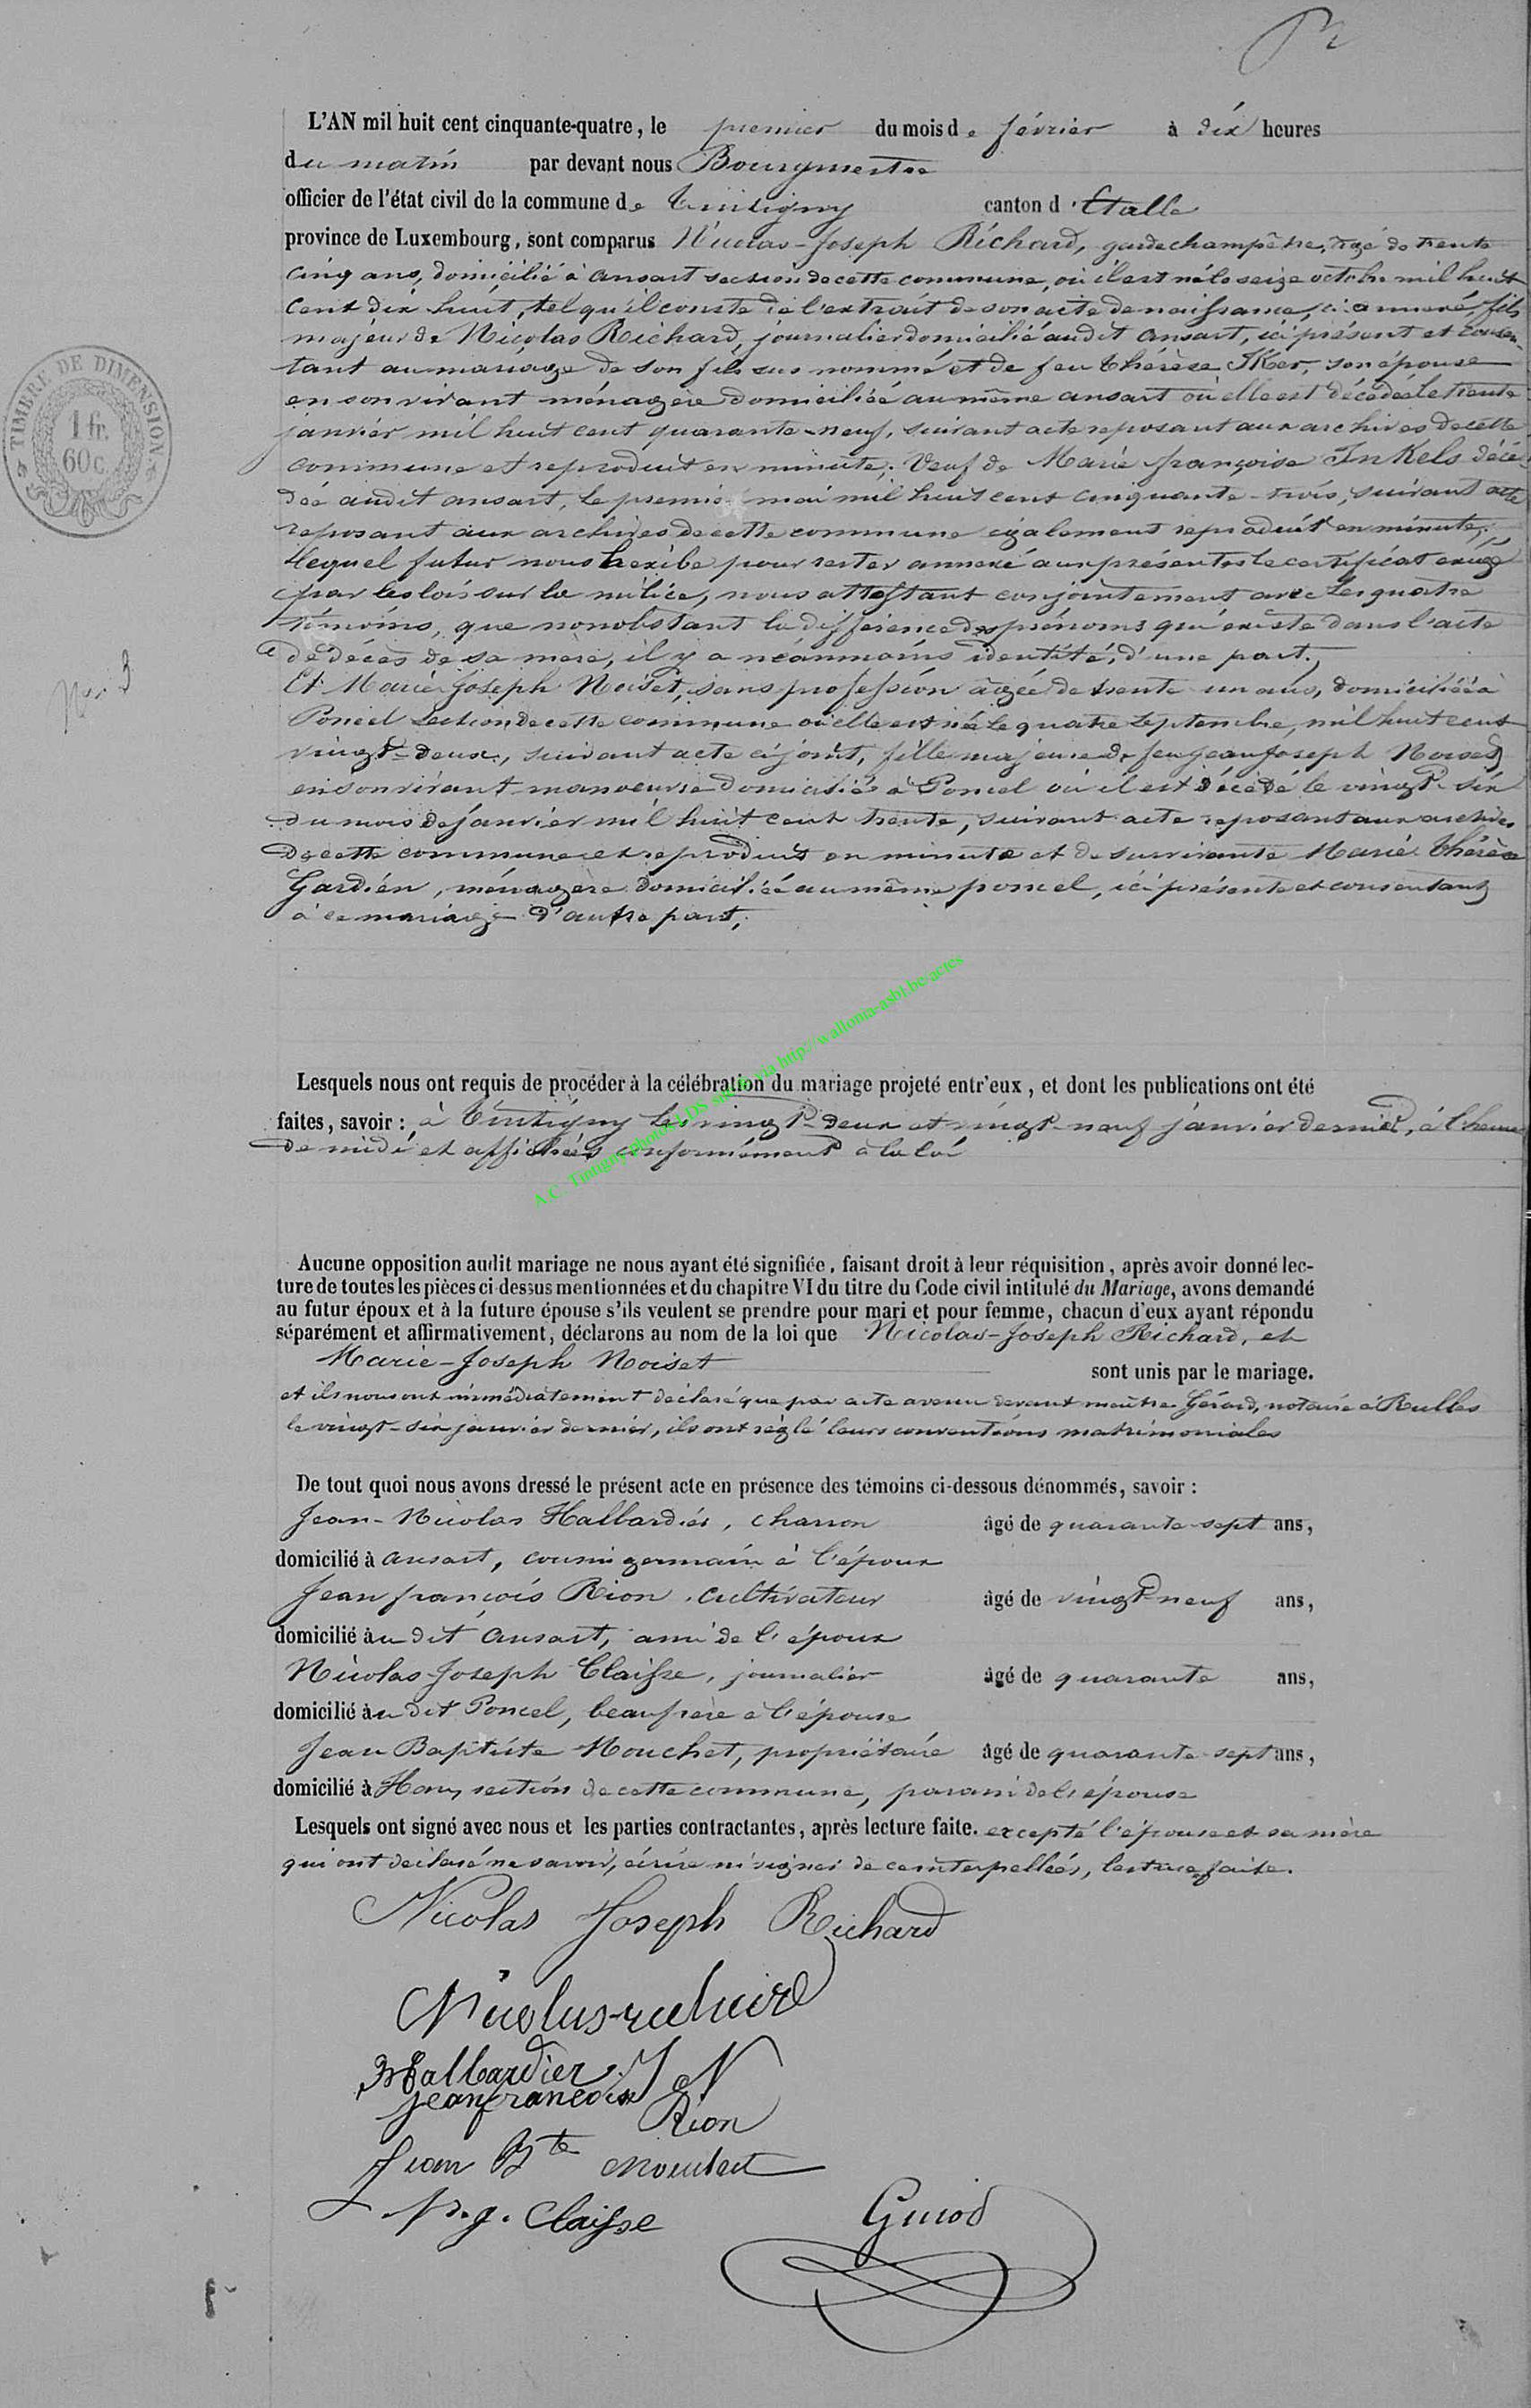 L'AN mil huit cent cinquante-quatre, le premier du mois de février à dix heures
du matin par devant nous Bourgmestre
officier de l'état civil de la commune de Tintigny canton d'Etalle
province de Luxembourg, sont comparus Nicolas-Joseph Richard, garde champêtre, âgé de trente
cinq ans, domicilié à ansart section de cette commune, où il est né le seize octobre mil huit
cent dix huit, tel qu'il conste de l'extrait de son acte de naissance, ci annexé, fils
majeur de Nicolas Richard, journalier domicilié audit ansart, ici présent et consen-
tant au mariage de son fils sus nommé et de feu Thérèse Ker, son épouse
en son vivant ménagère domiciliée au même ansart où elle est décédée le trente
janvier mil huit cent quarante-neuf, suivant acte reposant aux archives de cette
commune et reproduit en minute; Veuf de Marie françoise Inkels décé-
dée audit ansart, le premier mai mil huit cent cinquante-trois, suivant acte
reposant aux archives de cette commune également reproduit en minute;
lequel futur nous exibe pour rester annexé aux présentes le certificat exigé
par les lois sur la milice, nous attestant conjointement avec les quatre
témoins, que nonobstant la différence des prénoms qui existe dans l'acte
de décès de sa mère, il y a néanmoins identité, d'une part;
Et Marie Joseph Noiset, sans profession âgée de trente un ans, domiciliée à
Poncel section de cette commune où elle est née le quatre septembre, mil huit cent
vingt-deux, suivant acte ci joint, fille majeure de feu jean joseph Noiset
en son vivant manoeuvre domicilié à Poncel où il est décédé le vingt-six
du mois de janvier mil huit cent trente, suivant acte reposant aux archives
de cette commune et reproduit en minute et de survivante Marie Thérèse
Gardien, ménagère domiciliée au même poncel, ici présente et consentant
à ce mariage d'autre part;
Lesquels nous ont requis de procéder à la célébration du mariage projeté entr'eux, et dont les publications ont été
faites, savoir : à Tintigny les vingt-deux et vingt-neuf janvier dernier, à l'heure
de midi et affichées conformément à la loi
Aucune opposition audit mariage ne nous ayant été signifiée, faisant droit à leur réquisition, après avoir donné lec-
ture de toutes les pièces ci-dessus mentionnées et du chapitre VI du titre du Code civil intitulé du Mariage, avons demandé
au futur époux et à la future épouse s'ils veulent se prendre pour mari et pour femme, chacun d'eux ayant répondu
séparément et affirmativement, déclarons au nom de la loi que Nicolas-Joseph Richard, et
Marie-Joseph Noiset sont unis par le mariage.
et ils nous ont immédiatement déclaré que par acte avenu devant maître Gérard, notaire à Rulles
le vingt-six janvier dernier, ils ont réglé leurs conventions matrimoniales
De tout quoi nous avons dressé le présent acte en présence des témoins ci-dessous dénommés, savoir :
Jean-Nicolas Hallbardier, charron âgé de quarante-sept ans,
domicilié à ansart, cousin germain à l'époux
Jean françois Rion, cultivateur âgé de vingt-neuf ans,
domicilié audit ansart, ami de l'époux
Nicolas-Joseph Claisse, journalier âgé de quarante ans,
domicilié audit Poncel, beaufrère à l'épouse
Jean Baptiste Mouchet, propriétaire âgé de quarante-sept ans,
domicilié à Han, section de cette commune, de l'épouse
Lesquels ont signé avec nous et les parties contractantes, après lecture faite. excepté l'épouse et sa mère
qui ont déclaré ne savoir, écrire ni signer de ce interpellées, lecture faite.
Nicolas Joseph Richard
Nicolas
Hallbardier J N
jean francois Rion
Jean Bte Mouchet
N. j. Claisse
Guiod
TIMBRE DE DIMENSION
1 fr.
60c.
No 3
A.C. Tintigny via http://wallonia-asbl.be/actes